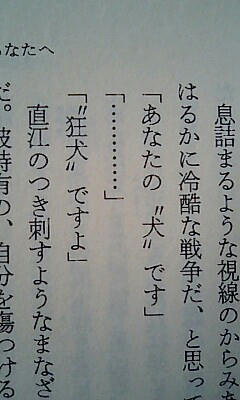 なたへ
息詰まるような視線のからみ
はるかに冷酷な戦争だ、と思って
「あなたの〝犬〟です」
「…………」
「〝狂犬〟ですよ」
直江のつき刺すようなまなざ
だ。彼特有の、自分を傷つける